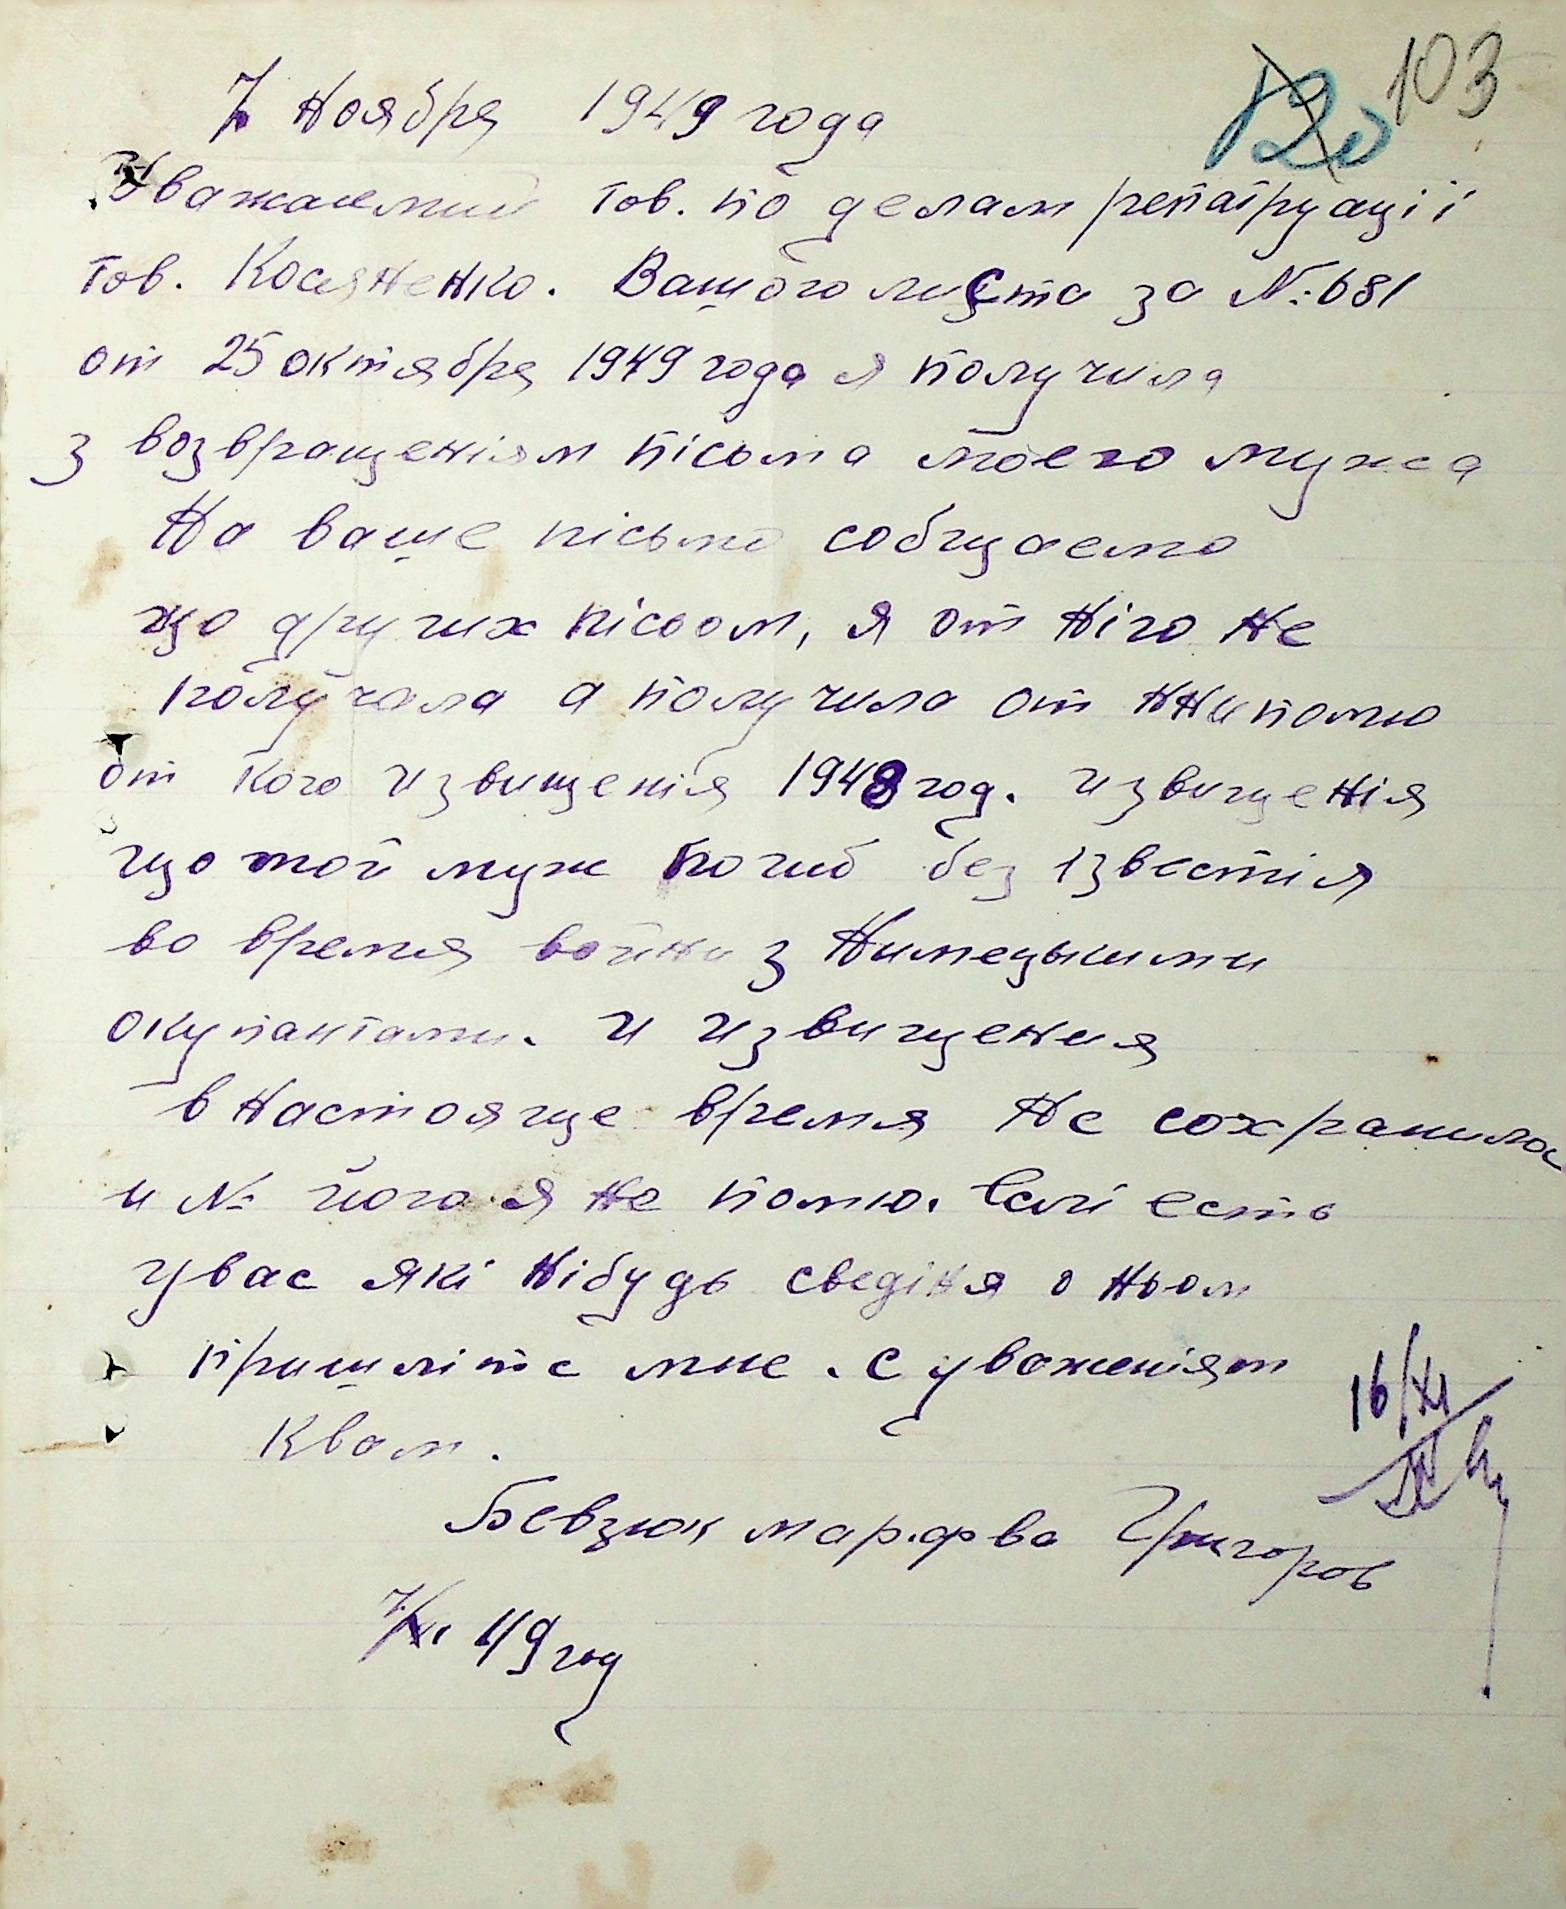 103
120
7 Ноября 1949 года
Уважаемий тов. по делам репатруації
тов. Косяненко. Вашого листа за №: 681
от 25 октября 1949 года я получила
з возвращеніям пісьма моего мужа
На ваше пісьмо собщаемо
що других пісьом, я от Ніго Не
получала а получила от ННипомю
от кого извищенія 1948 год. извищенія
що мой муж погиб без ізвестія
во время войни з Нимецькими
окупантами. и извищения
в Настояще время Не сохранилос
и № його я не помю. Еслі есть
у вас які Нібудь сведінія о Ньом
пришліте мне. с уваженіям
К вам.
Бевзюк Марфва Григоров
7/XI 49 год
16/XI